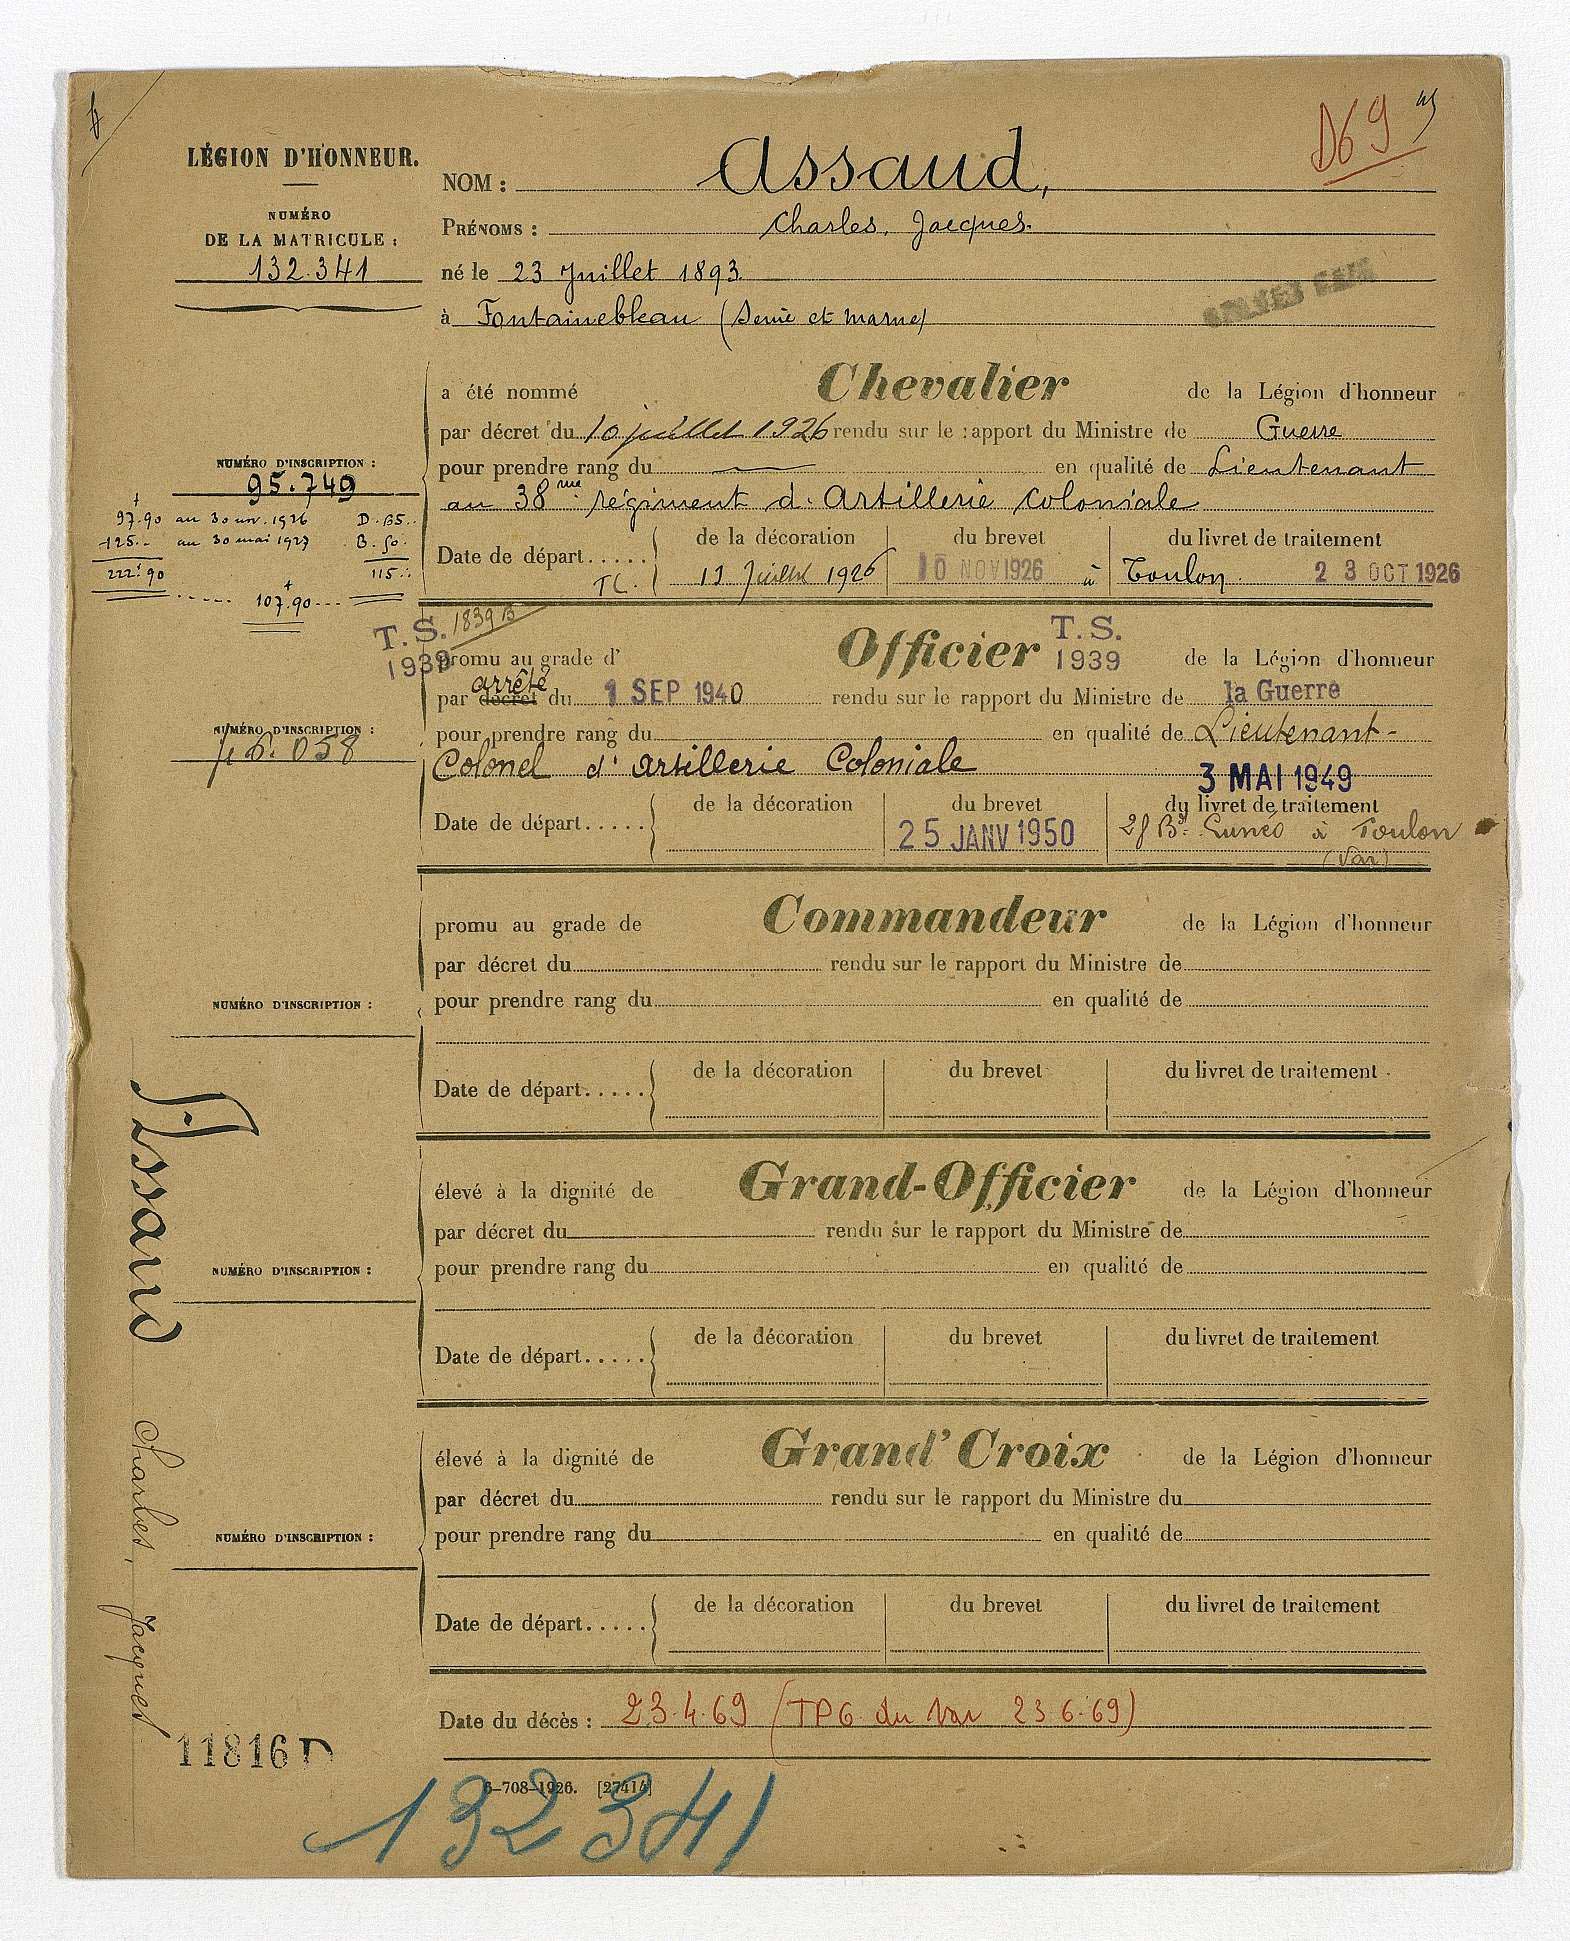 D69
LÉGION D'HONNEUR.
NUMÉRO
DE LA MATRICULE :
132.341
NOM : Assaud,
PRÉNOMS : Charles, Jacques.
né le 23 Juillet 1893.
à Fontainebleau (Seine et Marne)
a été nommé Chevalier de la Légion d'honneur
par décret du 10 juillet 1926 rendu sur le rapport du Ministre de Guerre
pour prendre rang du — en qualité de Lieutenant
au 38me régiment d'Artillerie Coloniale
NUMÉRO D'INSCRIPTION :
95.749
97.90 au 30 nov. 1926 D. 65..
125.- au 30 mai 1927 B. 50.
222.90 115..
107.90
Date de départ..... de la décoration du brevet du livret de traitement
TC. 11 Juillet 1926 10 NOV 1926 à Toulon. 23 OCT 1926
T.S. 1939 B
1939
promu au grade d' Officier T.S. 1939 de la Légion d'honneur
par décret arrêté du 1 SEP 1940 rendu sur le rapport du Ministre de la Guerre
pour prendre rang du en qualité de Lieutenant-
Colonel d'Artillerie Coloniale
NUMÉRO D'INSCRIPTION :
46.058
3 MAI 1949
Date de départ..... de la décoration du brevet du livret de traitement
25 JANV 1950 28 Bd à Toulon
(Var)
promu au grade de Commandeur de la Légion d'honneur
par décret du rendu sur le rapport du Ministre de
pour prendre rang du en qualité de
NUMÉRO D'INSCRIPTION :
Date de départ..... de la décoration du brevet du livret de traitement
élevé à la dignité de Grand-Officier de la Légion d'honneur
par décret du rendu sur le rapport du Ministre de
pour prendre rang du en qualité de
NUMÉRO D'INSCRIPTION :
Date de départ..... de la décoration du brevet du livret de traitement
élevé à la dignité de Grand' Croix de la Légion d'honneur
par décret du rendu sur le rapport du Ministre du
pour prendre rang du en qualité de
NUMÉRO D'INSCRIPTION :
Date de départ..... de la décoration du brevet du livret de traitement
Date du décès : 23.4.69 (TPG du Var 23.6.69)
Assaud Charles, Jacques
11816 D
6-708-1926. [27414]
132341